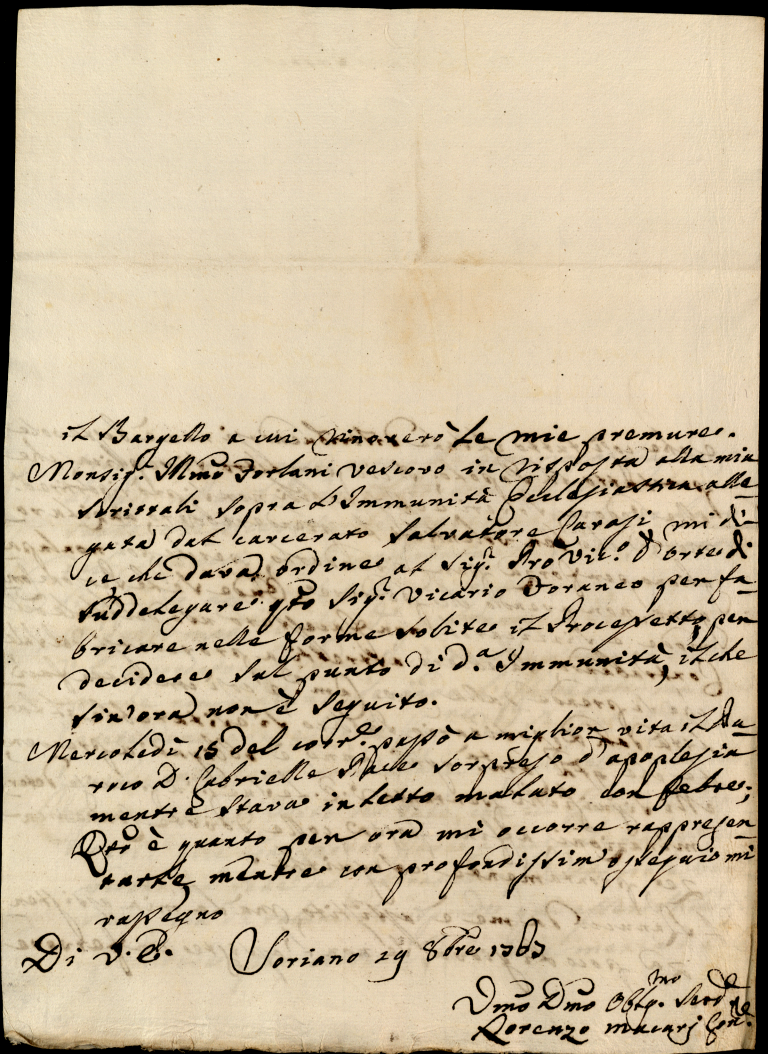 il Bargello a cui rinoverò le mie premure.
Monsig.r Ill.mo Forlani Vescovo in risposta alla mia
scrittali sopra l'Immunità Ecclesiastica alle-
gata dal carcerato Salvatore Carasi mi di-
ce che dava ordine al Sig.r Pro Vic.o d'Orte di
suddelegare q.to Sig.r Vicario Foraneo per fa-
bricare nelle forme solite il Processetto, per
decidere sul punto di d.a Immunità, il che
sin'ora non è seguito.
Mercoledì 15 del corr.e passò a miglior vita il Pa-
roco D. Gabrielle Pace sorpreso d'apoplesia
mentre stava in letto malato con febre;
Q.to è quanto per ora mi occorre rappresen-
tarle mentre con profondissim'ossequio mi
rassegno
Di V. E. Soriano 19 8bre 1767
U.mo D.mo Obblg.mo Serv.e
Lorenzo Macarj